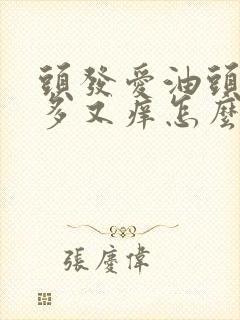 頭發愛油頭
多又痒怎麼
張慶偉